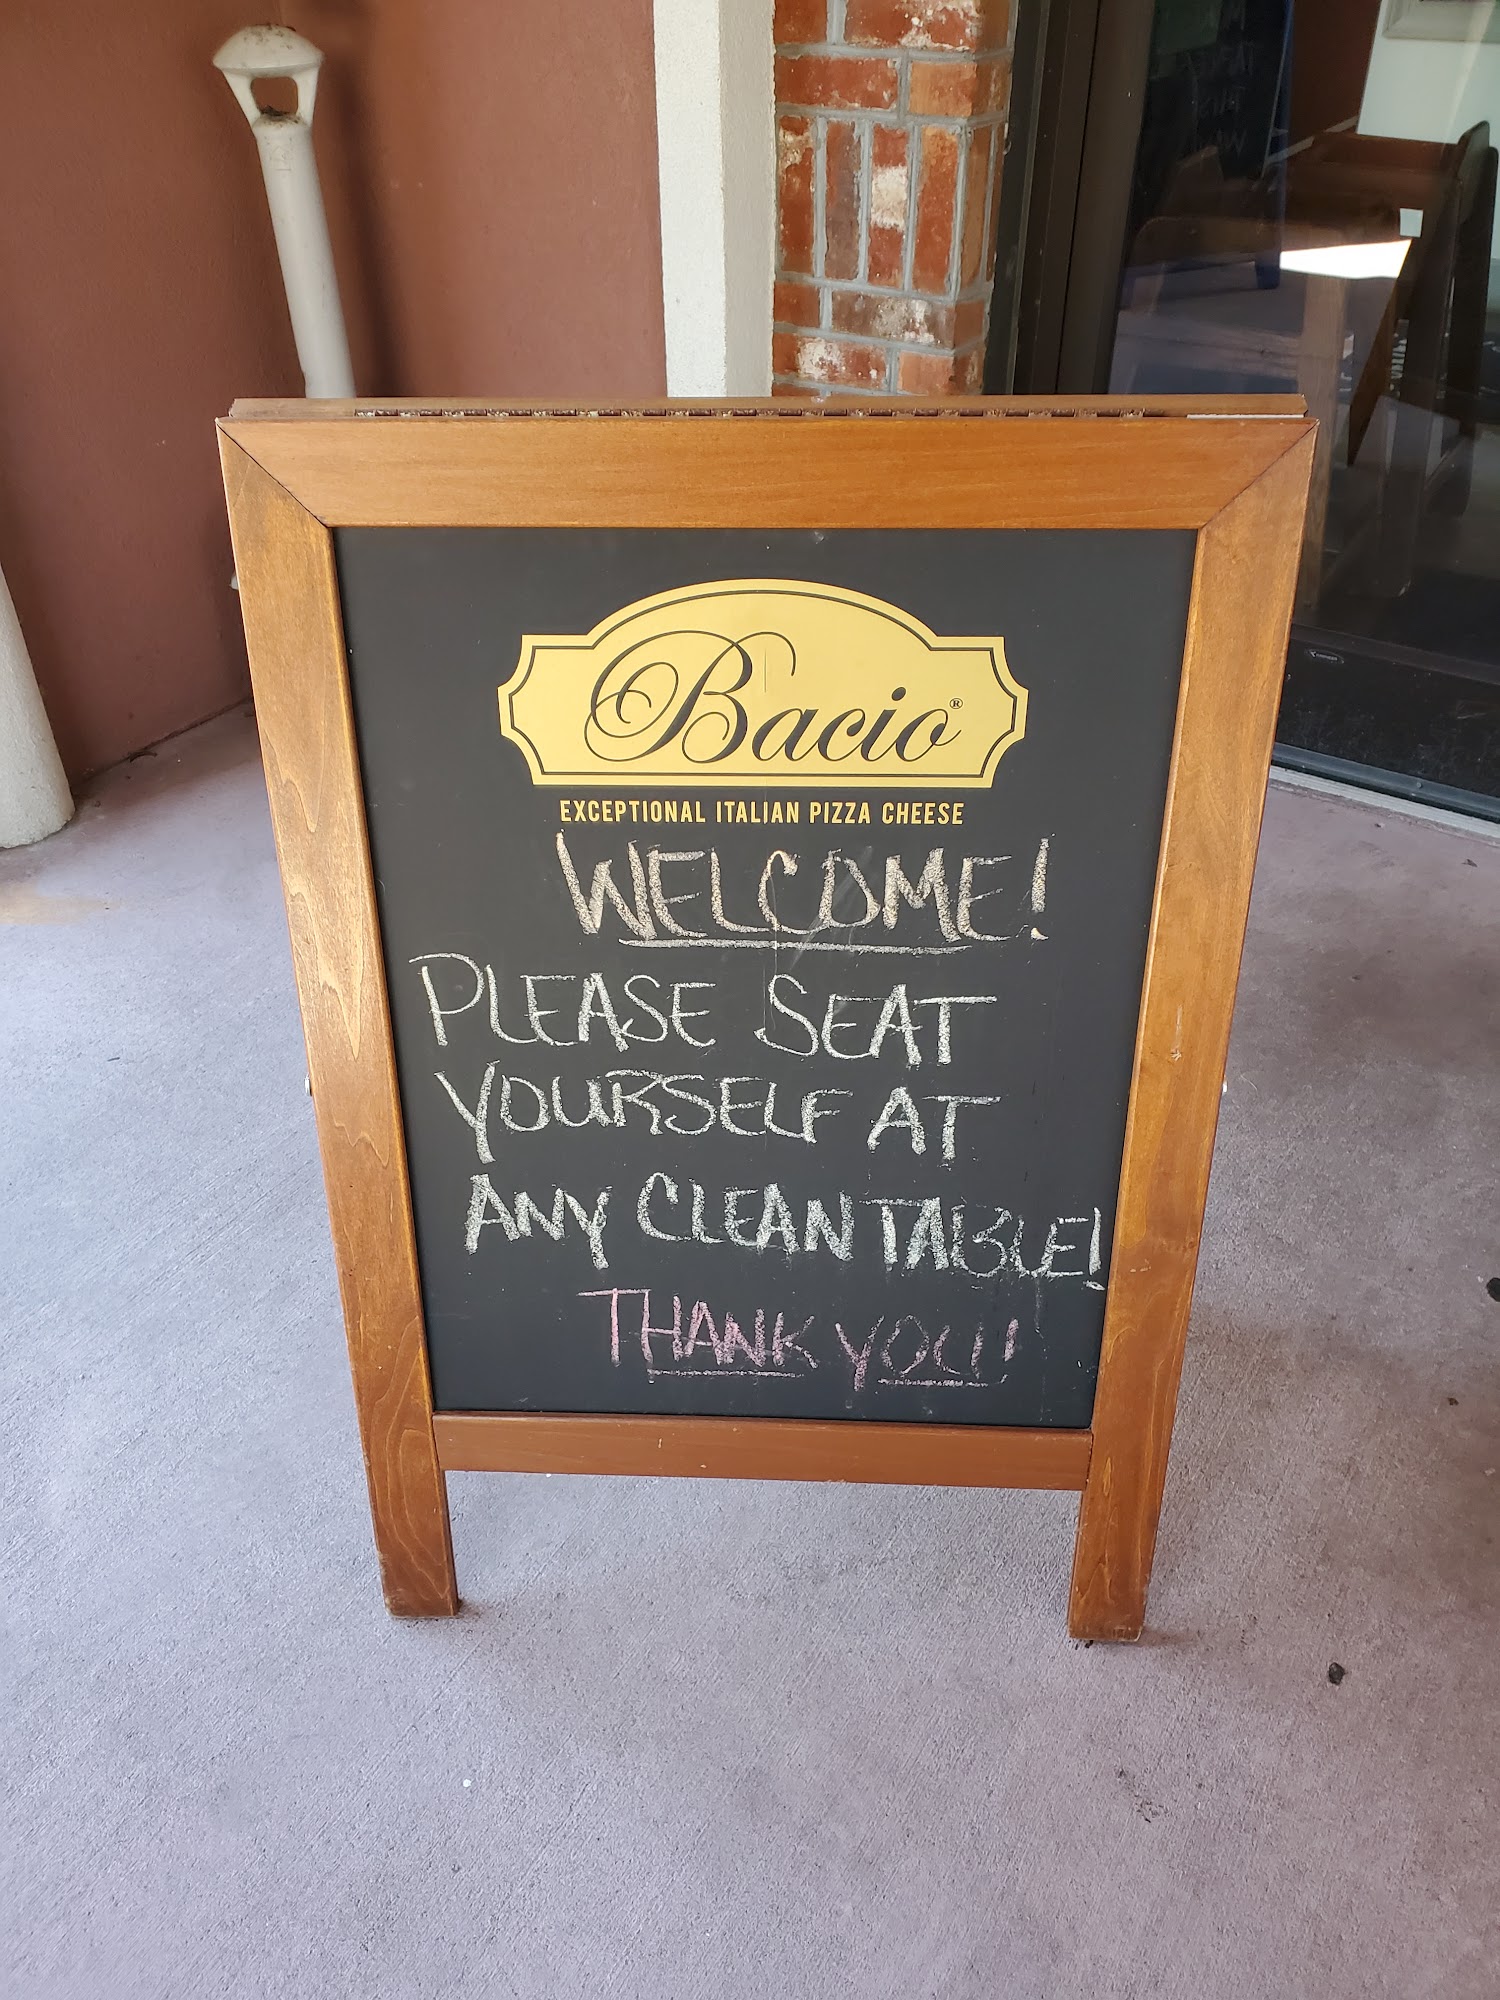 Bacio®
EXCEPTIONAL ITALIAN PIZZA CHEESE
WELCOME!
PLEASE SEAT
YOURSELF AT
ANY CLEAN TABLE!
THANK YOU!